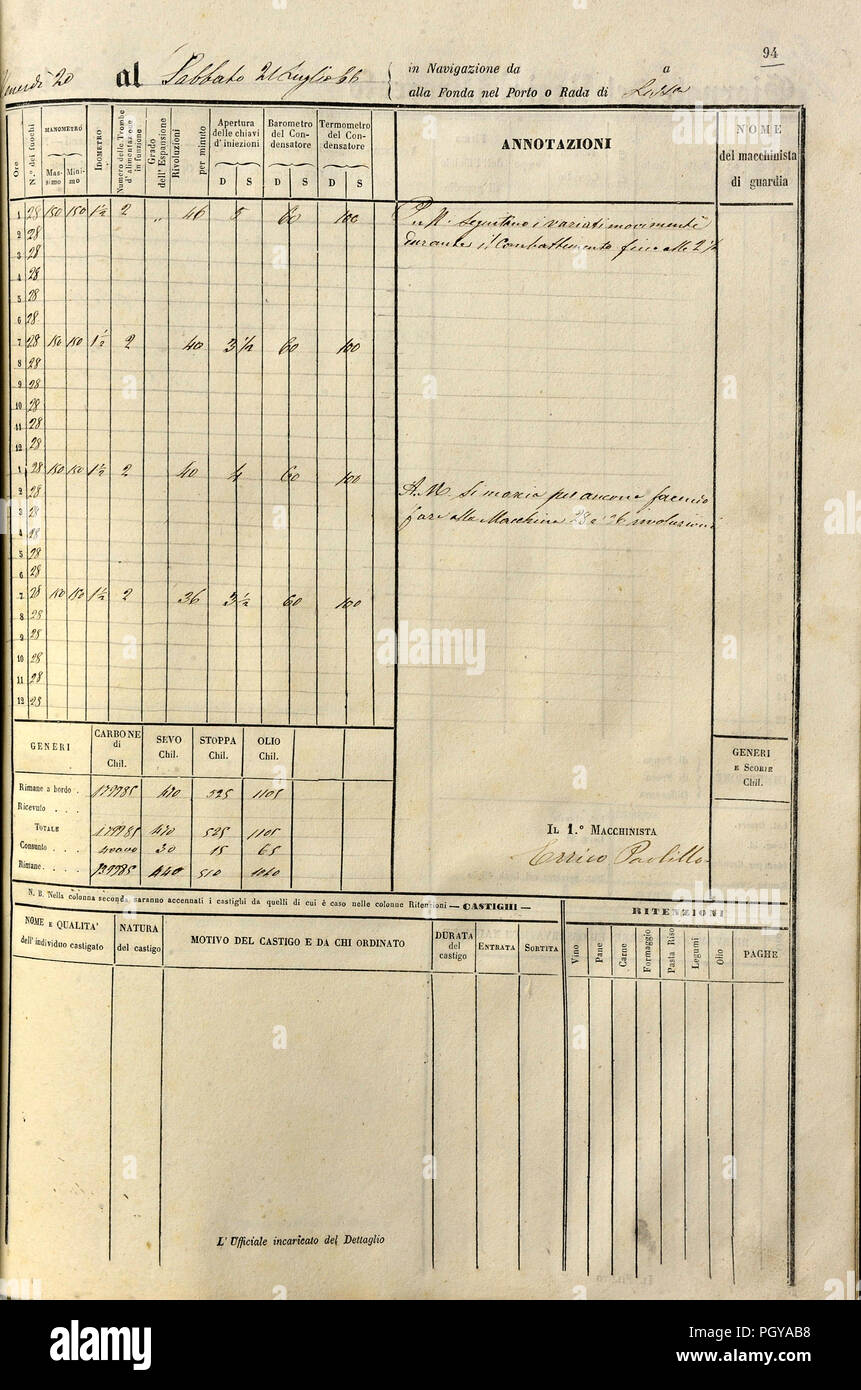 94
Venerdì 20 al Sabbato 21 Luglio 66
in Navigazione da a
alla Fonda nel Porto o Rada di Lissa
Ore
N.° dei fuochi
MANOMETRO
Massimo
Minimo
IDOMETRO
Numero delle Trombe d'alimentazione in funzione
Grado dell'Espansione
Rivoluzioni per minuto
Apertura delle chiavi d'iniezioni
D S
Barometro del Condensatore
D S
Termometro del Condensatore
D S
ANNOTAZIONI
NOME
del macchinista
di guardia
1 28 150 150 1½ 2 „ 46 5 60 100
2 28
3 28
4 28
5 28
6 28
7 28 150 150 1½ 2 40 3½ 60 100
8 28
9 28
10 28
11 28
12 28
1 28 150 150 1½ 2 40 4 60 100
2 28
3 28
4 28
5 28
6 28
7 28 150 150 1½ 2 36 3½ 60 100
8 28
9 28
10 28
11 28
12 28
P. M. Seguitano i variati movimenti
durante il Combattimento fino alle 2½
A. M. Si
fare alla Macchina 28 a 26 rivoluzioni
GENERI
CARBONE di Chil.
SEVO Chil.
STOPPA Chil.
OLIO Chil.
Rimane a bordo . 179985 470 525 1105
Ricevuto . . .
TOTALE 179985 470 525 1105
Consunto . . . 40000 30 15 65
Rimane. . . . 139985 440 510 1040
GENERI
E SCORIE
Chil.
IL 1.° MACCHINISTA
Errico Paolillo
N. B. Nella colonna seconda saranno accennati i castighi da quelli di cui è caso nelle colonne Ritenzioni — CASTIGHI —
RITENZIONI
NOME E QUALITA'
dell'individuo castigato
NATURA
del castigo
MOTIVO DEL CASTIGO E DA CHI ORDINATO
DURATA
del
castigo
ENTRATA
SORTITA
Vino
Pane
Carne
Formaggio
Pasta Riso
Legumi
Olio
PAGHE
L' Ufficiale incaricato del Dettaglio
alamy
alamy
Image ID: PGYAB8
www.alamy.com